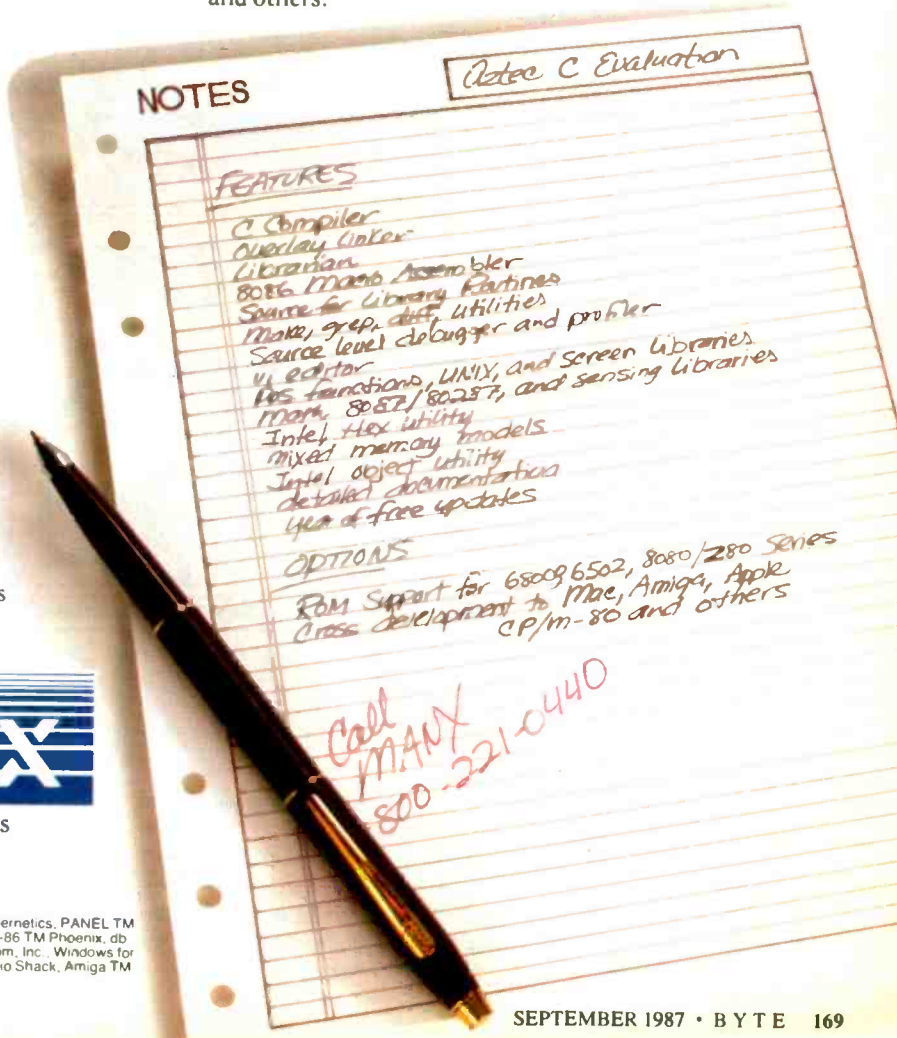 and others.
NOTES
Aztec C Evaluation
FEATURES
C Compiler
Overlay Linker
Librarian
8086 Macro Assembler
Source for Library Routines
Make, grep, diff, utilities
Source level debugger and profiler
vi editor
DOS functions, UNIX, and Screen Libraries
Math, 8087/80287, and sensing Libraries
Intel Hex utility
mixed memory models
Intel object utility
detailed documentation
year of free updates
OPTIONS
ROM Support for 68000, 6502, 8080/Z80 Series
Cross development to Mac, Amiga, Apple
CP/m-80 and others
Call
MANX
800-221-0440
s
X
s
ernetics, PANEL TM
-86 TM Phoenix, db
om, Inc., Windows for
io Shack, Amiga TM
SEPTEMBER 1987 • BYTE 169